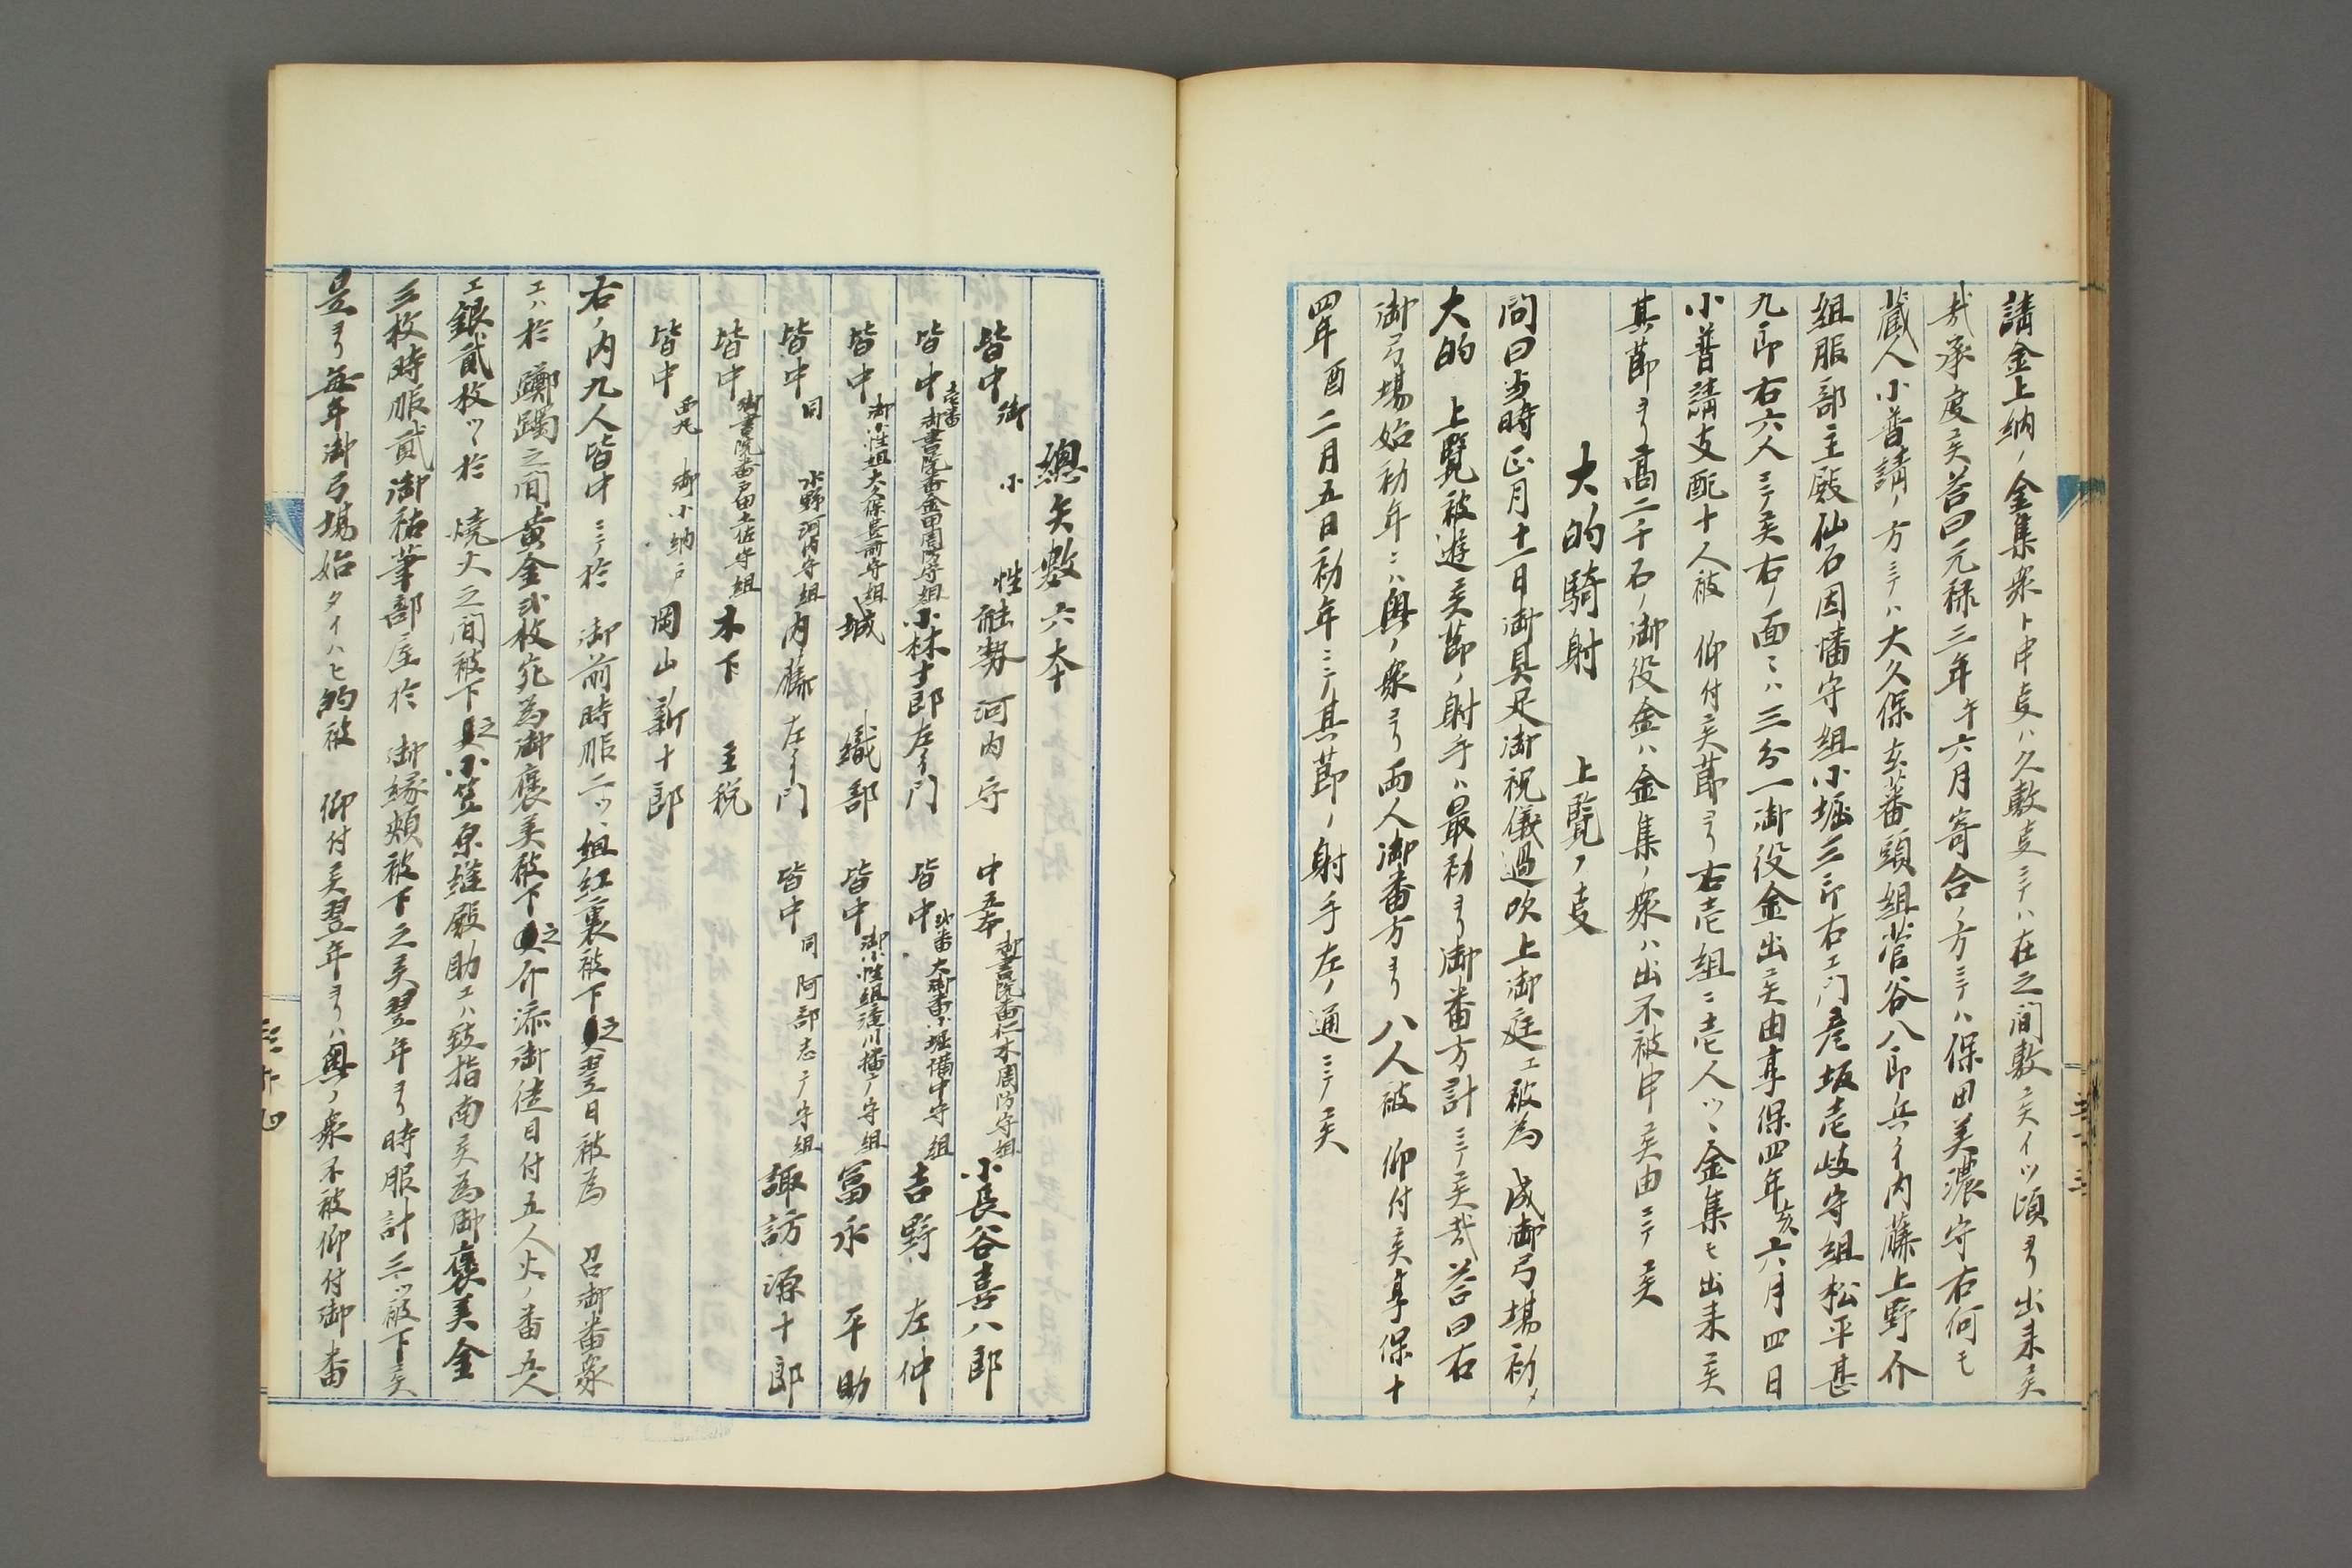 請金上納ノ金集衆ト申叓ハ久敷叓ニテハ在之間敷㕝イツ頃ヨリ出来㕝
哉承度㕝荅曰元禄三年午六月寄合ノ方ニテハ保田美濃守右何モ
蔵人小普請ノ方ニテハ大久保玄蕃頭組菅谷八郎兵ヱ内藤上野介
組服部主殿仙石因幡守組小堀三郎右エ門彦坂壱岐守組松平甚
九郎右六人ニテ㕝右ノ面々ハ三分一御役金出㕝由享保四年亥六月四日
小普請支配十人被 仰付㕝節ヨリ右壱組ニ壱人ツヽ金集モ出来㕝
其節ヨリ髙二千石ノ御役金ハ金集ノ衆ハ出不被申㕝由ニテ㕝
大的騎射 上覧ノ叓
問曰当時正月十一日御具足御祝儀過吹上御庭エ被為 成御弓場初メ
大的 上覧被遊㕝節ノ射手ハ最初ヨリ御番方計ニテ㕝哉荅曰右
御弓場始初年ニハ奥ノ衆ヨリ両人御番方ヨリ八人被 仰付㕝享保十
四年酉二月五日初年ニテ其節ノ射手左ノ通ニテ㕝
總矢數六十本
皆中 御小性 能勢河内守 中五本 御書院番仁木周防守組 小長谷喜八郎
皆中 壱番御書院番金田周防守組 小林十郎左ヱ門 皆中 弐番大御番小堀備中守組 吉野左仲
皆中 御小性組大久保豊前守組 城織部 皆中 御小性組滝川播广守組 冨永平助
皆中 同 水野河内守組 内藤左ヱ門 皆中 同 阿部志广守組 諏訪源十郎
皆中 御書院番戸田土佐守組 木下主税
皆中 西丸 御小納戸 岡山新十郎
右ノ内九人皆中ニテ於 御前時服二ツヽ組紅裏被下之翌日被為 召御番衆
エハ於 躑躅之間黄金弐枚宛為御褒美被下之介添御徒目付五人火ノ番五人
エ銀貳枚ツヽ於 焼火之間被下之小笠原縫殿助エハ致指南㕝為御褒美金
三枚時服貳御祐筆部屋於 御縁頬被下之㕝翌年ヨリ時服計三ツ被下㕝
是ヨリ毎年御弓場始タイハヒ的被 仰付㕝翌年ヨリハ奥ノ衆不被仰付御番